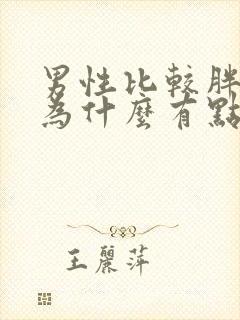 男性比較胖
為什麼有點
王麗萍